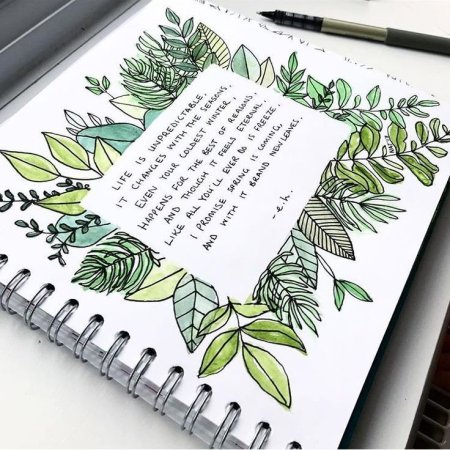 LIFE IS UNPREDICTABLE,
IT CHANGES WITH THE SEASONS,
EVEN YOUR COLDEST WINTER,
HAPPENS FOR THE BEST OF REASONS
AND THOUGH IT FEELS ETERNAL,
LIKE ALL YOU'LL EVER DO IS FREEZE,
I PROMISE SPRING IS COMING,
AND WITH IT BRAND NEW LEAVES.
-e.h.